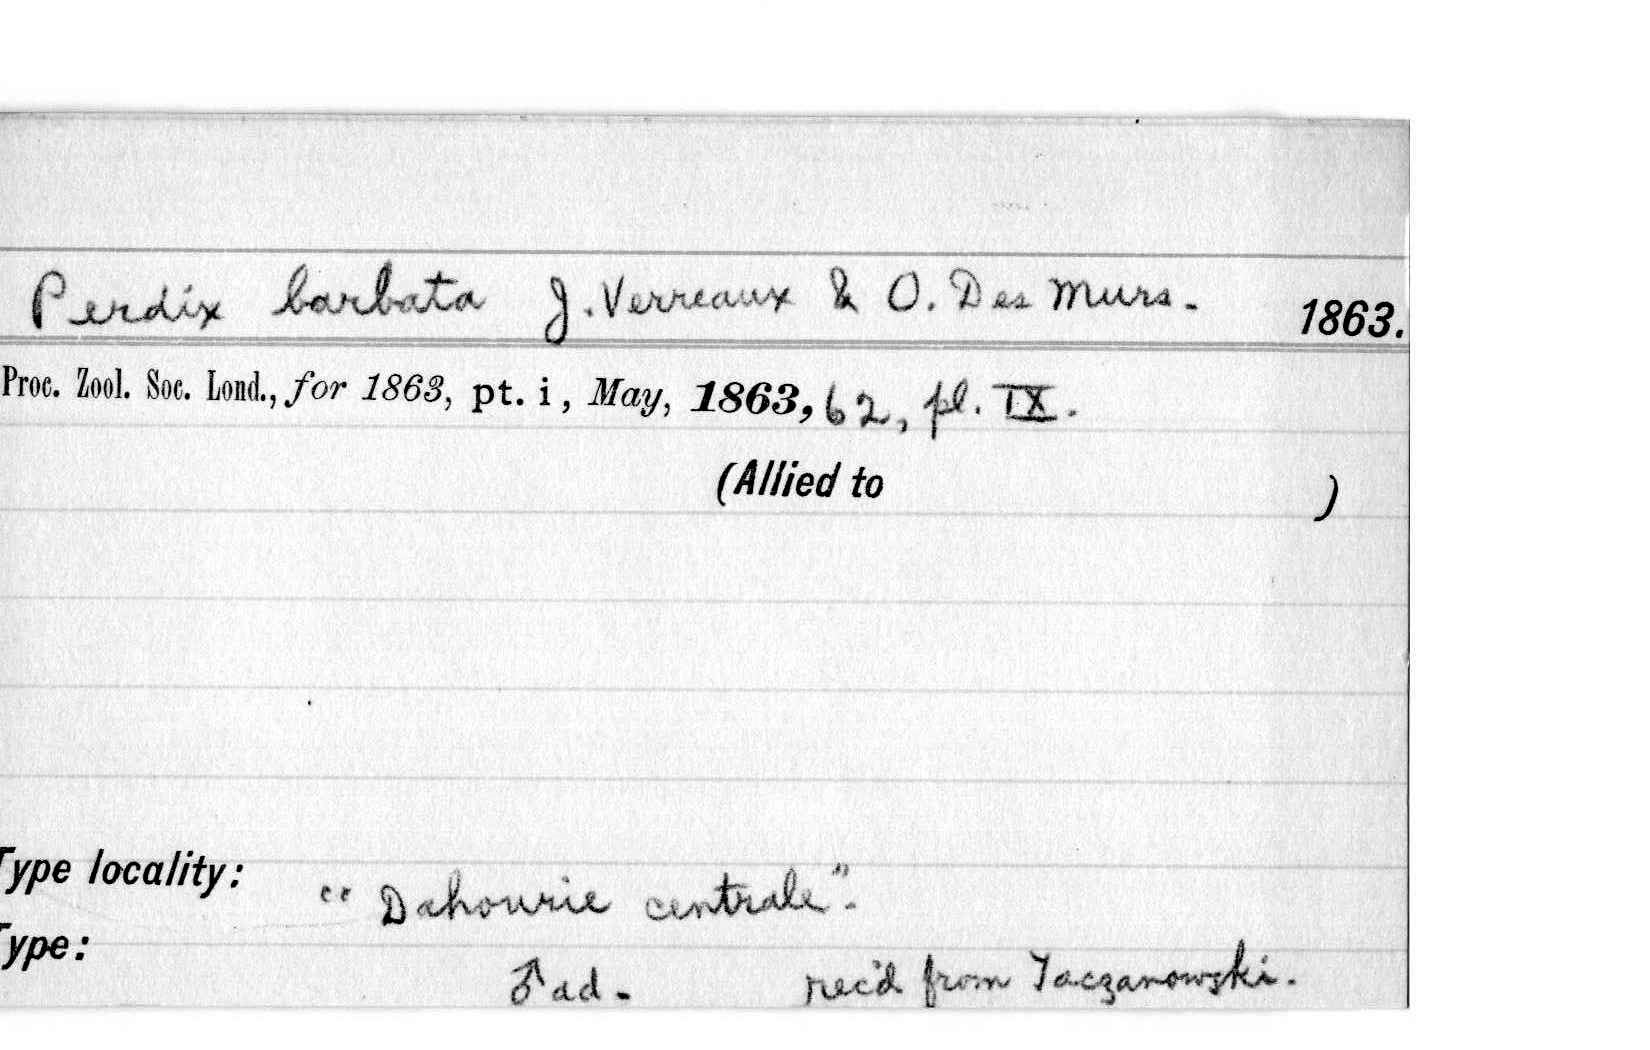 Perdix barbata J. Verreaux & O. Des Murs. 1863.
Proc. Zool. Soc. Lond., for 1863, pt. i, May, 1863, 62, pl. IX.
(Allied to )
Type locality: "Dahourie centrale".
Type:
♂ ad. rec'd from Taczanowski.